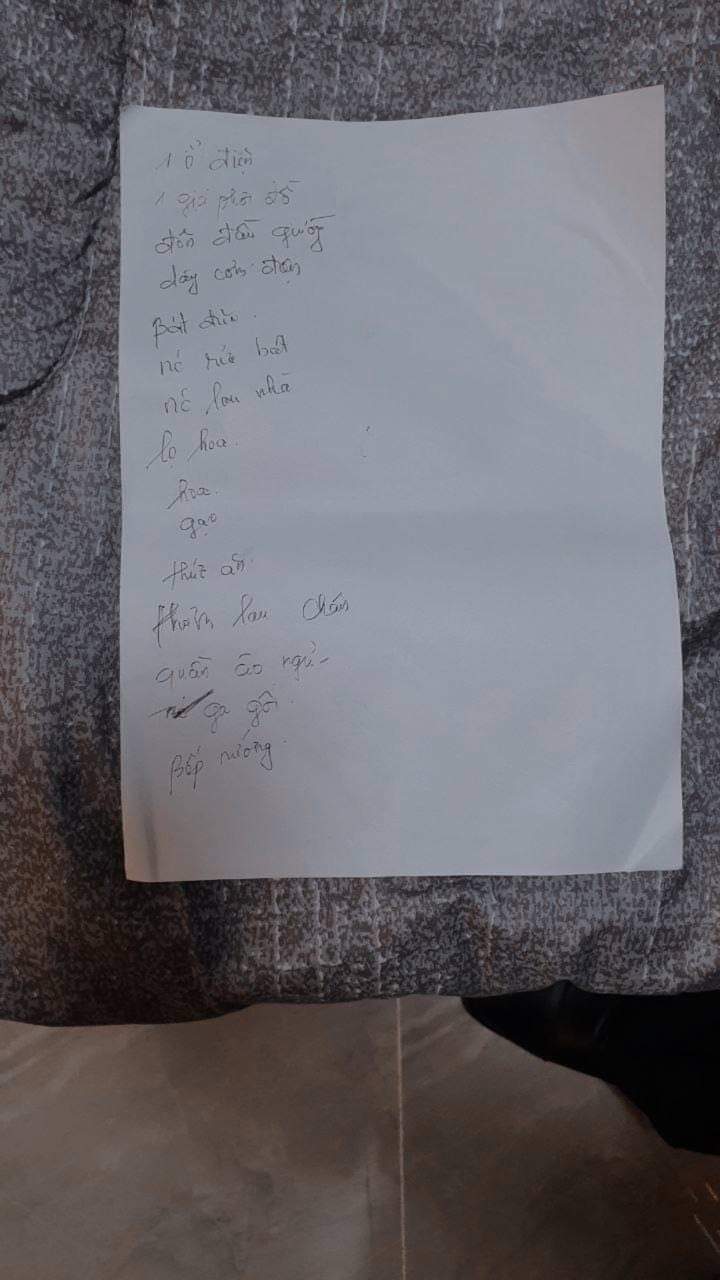 1 ổ điện
1 giá phơi đồ
đôn đầu giường
dây cơm điện
Bát đĩa.
nc rửa bát
nc lau nhà
lọ hoa.
hoa.
gạo
thức ăn.
thảm lau chân
quần áo ngủ
ga gối.
Bếp nướng.